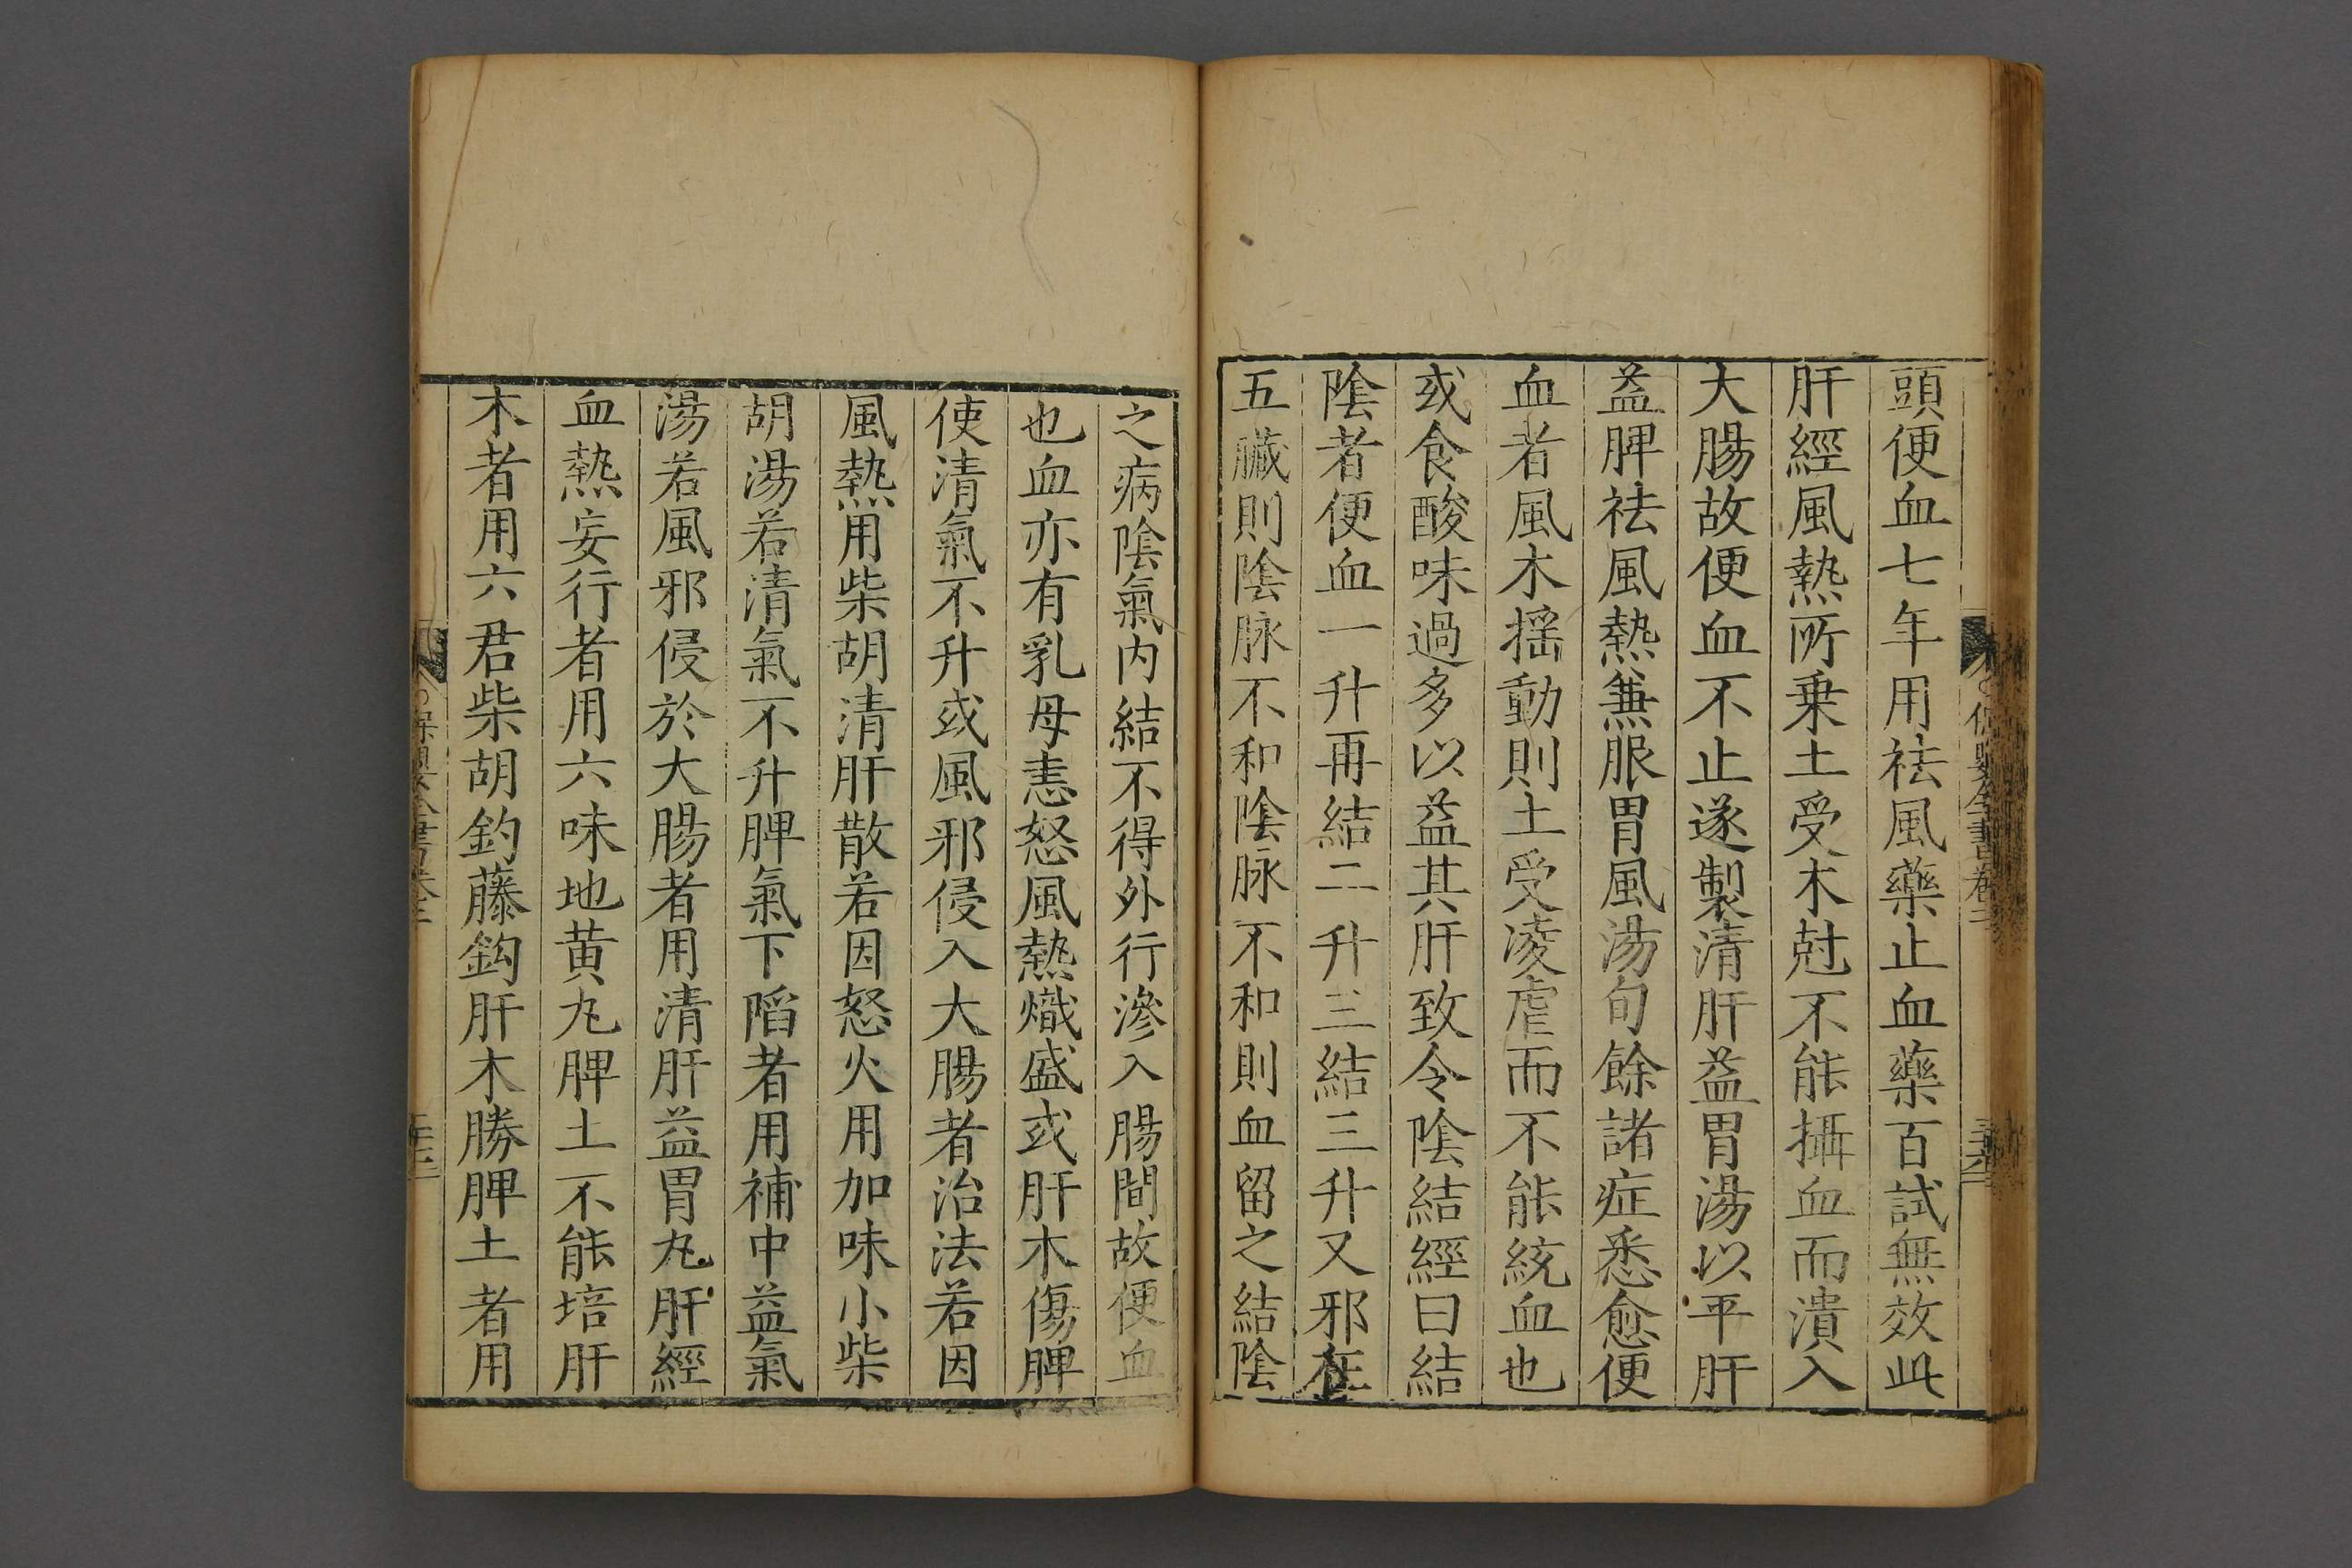 頭便血七年用祛風藥止血藥百試無效此
肝經風熱所乗土受木尅不能攝血而潰入
大腸故便血不止遂製清肝益胃湯以平肝
益脾祛風熱兼服胃風湯旬餘諸症悉愈便
血者風木揺動則土受凌虐而不能統血也
或食酸味過多以益其肝致令陰結經曰結
陰者便血一升再結二升三結三升又邪在
五臟則陰脉不和陰脉不和則血留之結陰
之病陰氣内結不得外行滲入腸間故便血
也血亦有乳母恚怒風熱熾盛或肝木傷脾
使清氣不升或風邪侵入大腸者治法若因
風熱用柴胡清肝散若因怒火用加味小柴
胡湯若清氣不升脾氣下陷者用補中益氣
湯若風邪侵於大腸者用清肝益胃丸肝經
血熱妄行者用六味地黄丸脾土不能培肝
木者用六君柴胡釣藤鈎肝木勝脾土者用